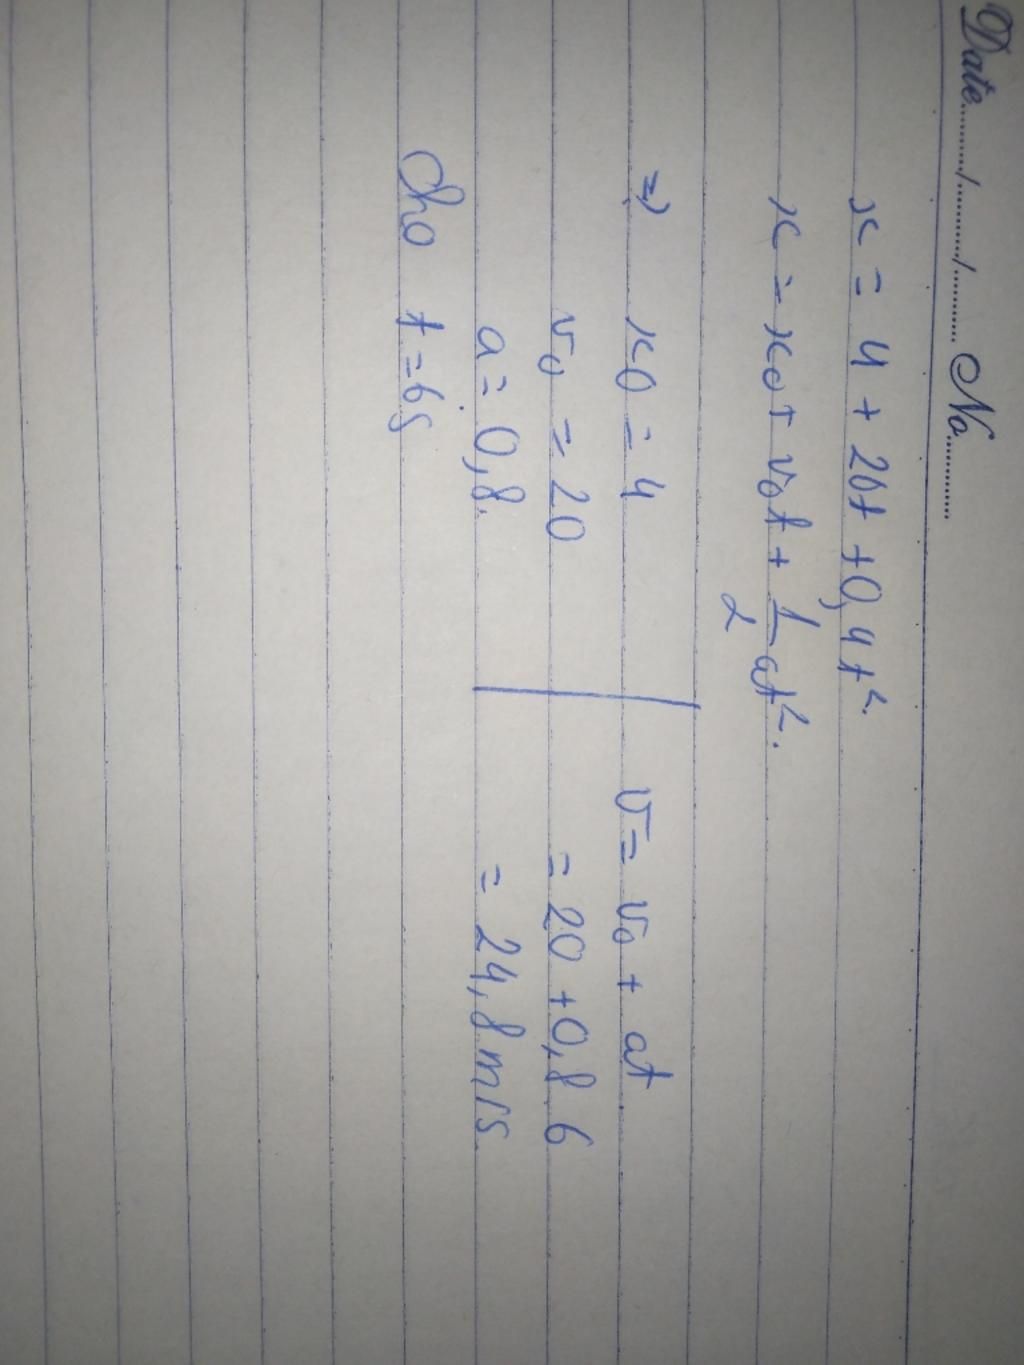 Date......../........../.......... No..........
x = 4 + 20t + 0,4t².
x = x0 + v0t + 1/2 at².
=> x0 = 4
v0 = 20
a = 0,8.
Cho t = 6s
v = v0 + at
= 20 + 0,8.6
= 24,8m/s.